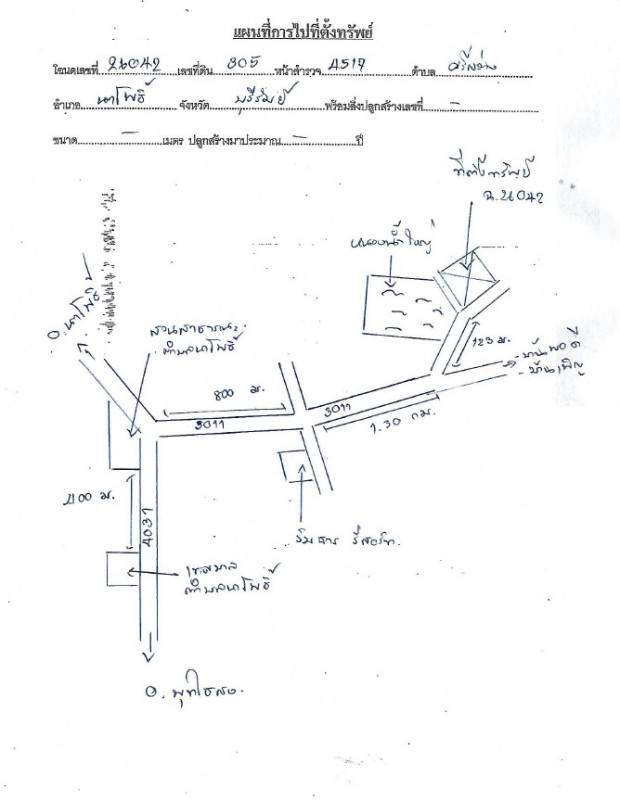 แผนที่การไปที่ตั้งทรัพย์
โฉนดเลขที่ 26042 เลขที่ดิน 305 หน้าสำรวจ 4517 ตำบล ศรีสว่าง
อำเภอ นาโพธิ์ จังหวัด บุรีรัมย์ พร้อมสิ่งปลูกสร้างเลขที่ -
ขนาด - เมตร ปลูกสร้างมาประมาณ - ปี
ที่ตั้งทรัพย์
ฉ.26042
หนองน้ำใหญ่
อ.นาโพธิ์
สวนสาธารณะ
ตำบลนาโพธิ์
123 ม.
800 ม.
3011
3011
1.30 กม.
400 ม.
4037
ริมธาร รีสอร์ท
เทศบาล
ตำบลนาโพธิ์
อ. พุทไธสง